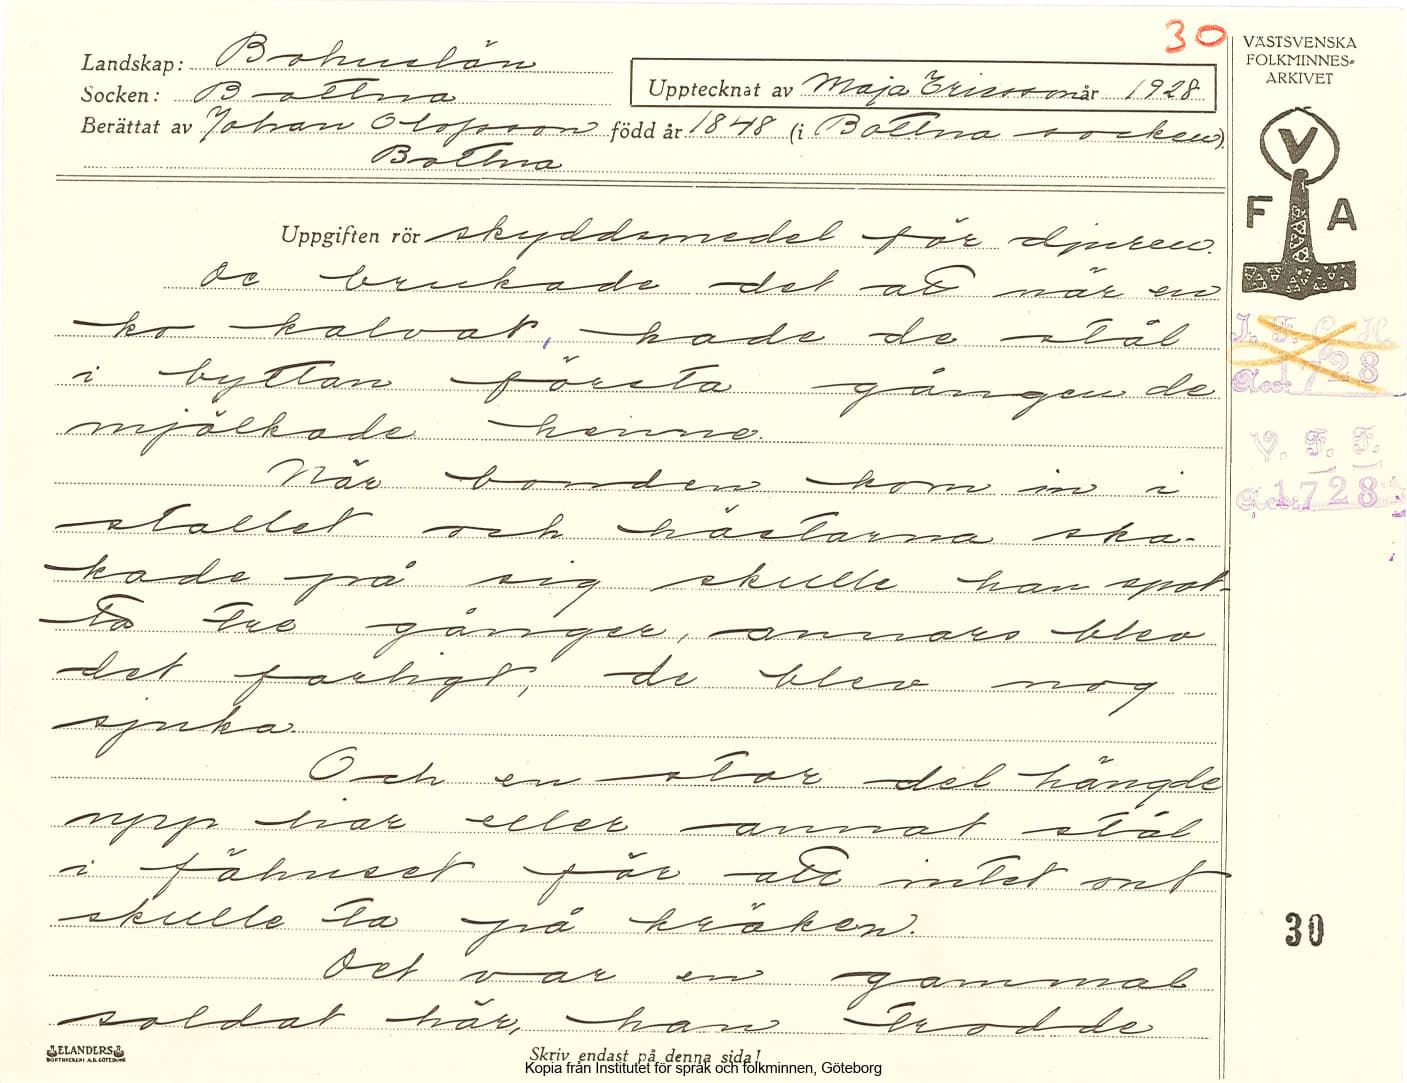 30
VÄSTSVENSKA
FOLKMINNES-
ARKIVET
Landskap: Bohuslän
Socken: Bottna
Upptecknat av Maja Ericsson år 1928
Berättat av Johan Olofsson född år 1848 (i Bottna socken).
Bottna
V
F A
Uppgiften rör skyddsmedel för djuren.
De brukade det att när en
ko kalvat, hade de stål
i byttan första gången de
mjölkade henne.
När bonden kom in i
stallet och hästarna ska-
kade på sig skulle han spot-
ta tre gånger, annars blev
det farligt, de blev nog
sjuka.
Och en stor del hängde
upp liar eller annat stål
i fähuset för att intet ont
skulle ta på kräken.
Det var en gammal
soldat här, han trodde
I. F. G. H.
Acc 1728
V. F. F.
Acc. 1728
30
ELANDERS
BOKTRYCKERI A.B. GÖTEBORG
Skriv endast på denna sida!
Kopia från Institutet för språk och folkminnen, Göteborg